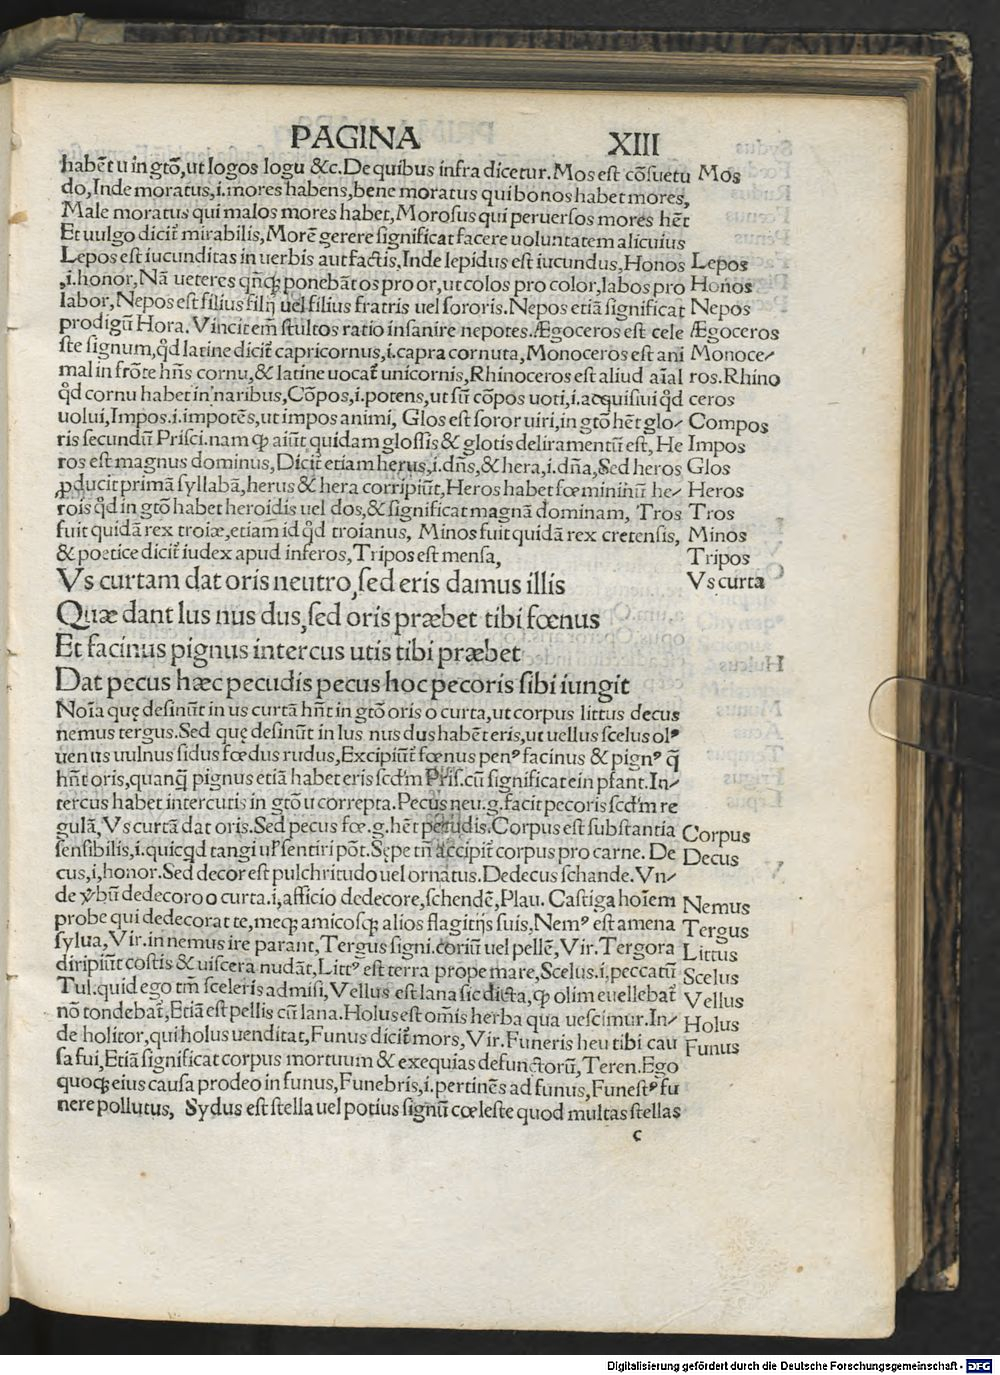 PAGINA XIII
habẽt u in gtõ, ut logos logu &c. De quibus infra dicetur. Mos est cõsuetu Mos
do, Inde moratus, .i. mores habens, bene moratus qui bonos habet mores,
Male moratus qui malos mores habet, Morosus qui peruersos mores hẽt
Et uulgo dicit᷑ mirabilis, Morẽ gerere significat facere uoluntatem alicuius
Lepos est iucunditas in uerbis aut factis, Inde lepidus est iucundus, Honos Lepos
.i. honor, Nã ueteres qñqꝫ ponebãt os pro or, ut colos pro color, labos pro Honos
labor, Nepos est filius filij uel filius fratris uel sororis. Nepos etiã significat Nepos
prodigũ Hora. Vincit em̃ stultos ratio insanire nepotes. Ægoceros est cele Ægoceros
ste signum, qd̉ latine dicit᷑ capricornus, .i. capra cornuta, Monoceros est ani Monoce⸗
mal in frõte hñs cornu, & latine uocat᷑ unicornis, Rhinoceros est aliud aĩal ros. Rhino
qd̉ cornu habet in naribus, Cõpos, .i. potens, ut sũ cõpos uoti, .i. acquisiui qd̉ ceros
uolui, Impos .i. impotẽs, ut impos animi, Glos est soror uiri, in gtõ hẽt glo⸗ Compos
ris secundũ Prisci. nam ꝙ aiũt quidam glossis & glotis deliramentũ est, He Impos
ros est magnus dominus, Dicit᷑ etiam herus, .i. dñs, & hera, .i. dña, Sed heros Glos
ꝓducit primã syllabã, herus & hera corripiũt, Heros habet fœmininũ he⸗ Heros
rois qd̉ in gtõ habet heroidis uel dos, & significat magnã dominam, Tros Tros
fuit quidã rex troiæ, etiam id qd̉ troianus, Minos fuit quidã rex cretensis, Minos
& poetice dicit᷑ iudex apud inferos, Tripos est mensa, Tripos
Vs curtam dat oris neutro, sed eris damus illis Vs curta
Quæ dant lus nus dus, sed oris præbet tibi fœnus
Et facinus pignus intercus utis tibi præbet
Dat pecus hæc pecudis pecus hoc pecoris sibi iungit
Noĩa quę desinũt in us curtã hñt in gtõ oris o curta, ut corpus littus decus
nemus tergus. Sed quę desinũt in lus nus dus habẽt eris, ut uellus scelus olꝰ
uenus uulnus sidus fœdus rudus, Excipiũt᷑ fœnus penꝰ facinus & pignꝰ q̃
hñt oris, quanq̃ pignus etiã habet eris scd̃m Pris. cũ significat ein pfant. In⸗
tercus habet intercutis in gtõ u correpta. Pecus neu. g. facit pecoris scd̃m re
gulã, Vs curtã dat oris. Sed pecus fœ. g. hẽt pecudis. Corpus est substantia Corpus
sensibilis, .i. quicqd tangi uł sentiri põt. Sępe tñ accipit᷑ corpus pro carne. De Decus
cus, .i. honor. Sed decor est pulchritudo uel ornatus. Dedecus schande. Vn⸗
de ỽbũ dedecoro o curta. .i. afficio dedecore, schendẽ, Plau. Castiga hoĩem Nemus
probe qui dedecorat te, meqꝫ amicosqꝫ alios flagitijs suis, Nemꝰ est amena Tergus
sylua, Vir. in nemus ire parant, Tergus signi. coriũ uel pellẽ, Vir. Tergora Littus
diripiũt costis & uiscera nudãt, Littꝰ est terra prope mare, Scelus .i. peccatũ Scelus
Tul. quid ego tm̃ sceleris admisi, Vellus est lana sic dicta, ꝙ olim euellebat᷑ Vellus
nõ tondebat᷑, Etiã est pellis cũ lana. Holus est om̃is herba qua uescimur. In⸗ Holus
de holitor, qui holus uenditat, Funus dicit᷑ mors, Vir. Funeris heu tibi cau Funus
sa fui, Etiã significat corpus mortuum & exequias defunctorũ, Teren. Ego
quoqꝫ eius causa prodeo in funus, Funebris, .i. pertinẽs ad funus, Funestꝰ fu
nere pollutus, Sydus est stella uel potius signũ cœleste quod multas stellas
c
Digitalisierung gefördert durch die Deutsche Forschungsgemeinschaft - DFG